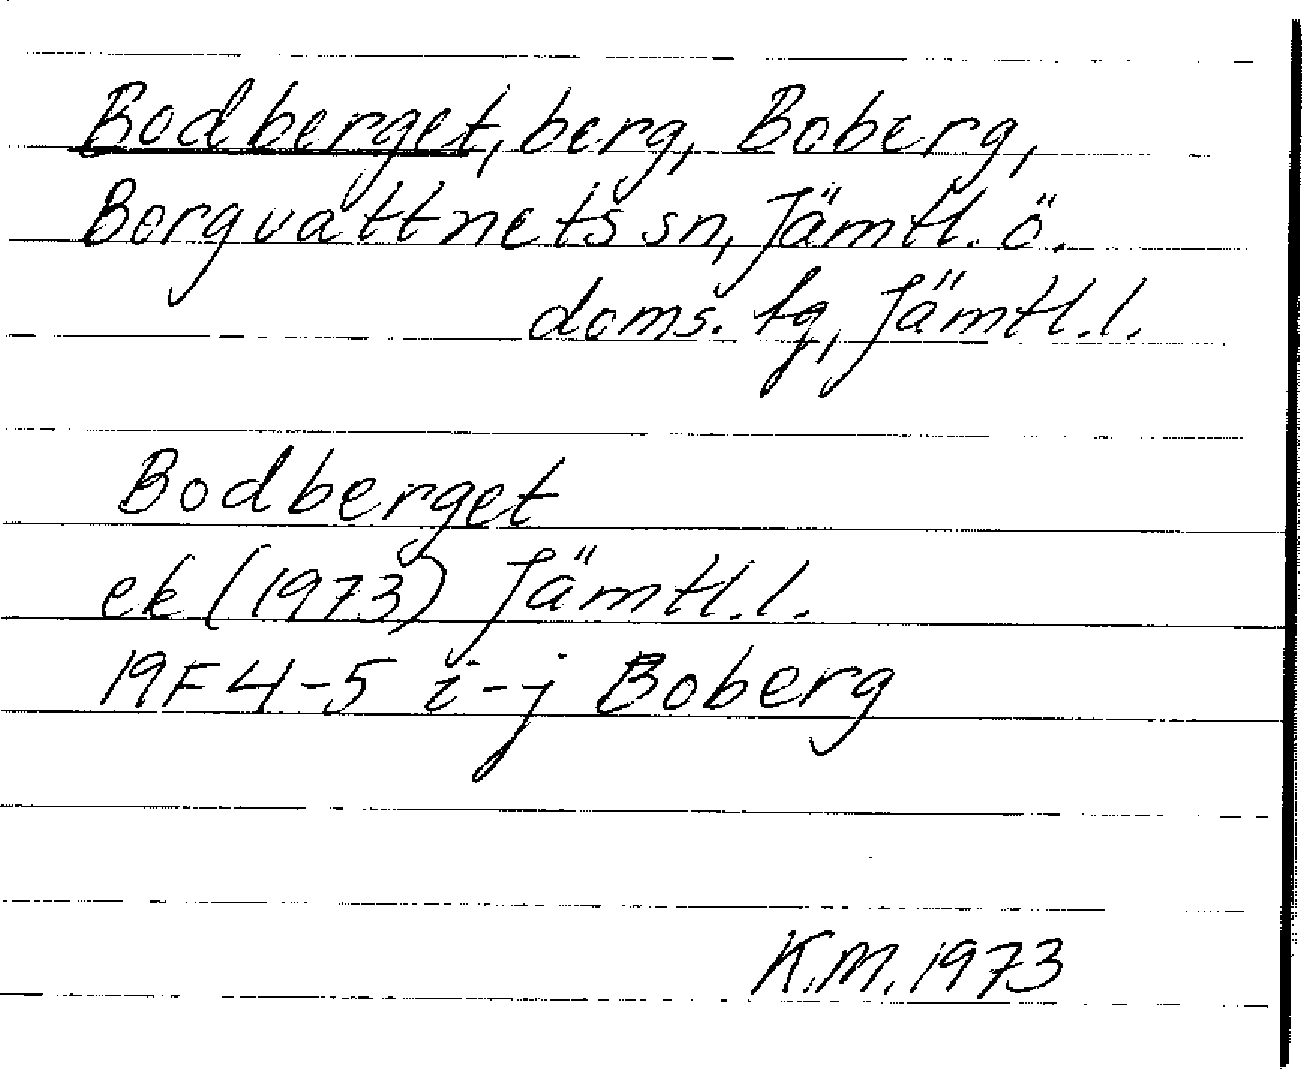 Bodberget, berg, Boberg,
Borgvattnets sn, Jämtl. ö.
doms. tg, Jämtl. l.
Bodberget
ek (1973) Jämtl. l.
19F 4-5 i-j Boberg
K.M. 1973